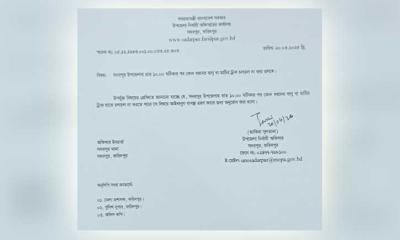 গণপ্রজাতন্ত্রী বাংলাদেশ সরকার
উপজেলা নির্বাহী অফিসারের কার্যালয়
সদরপুর, ফরিদপুর
www.sadarpur.faridpur.gov.bd
স্মারক নং
তারিখঃ
বিষয়ঃ সদরপুর উপজেলায় রাত ১০.০০ ঘটিকার পর কোন ধরনের বালু বা মাটির ট্রাক চলাচল না করা প্রসঙ্গে।
উপর্যুক্ত বিষয়ের প্রেক্ষিতে জানানো যাচ্ছে যে, সদরপুর উপজেলায় রাত ১০.০০ ঘটিকার পর কোন ধরনের বালু বা মাটির
ট্রাক যাতে চলাচল না করতে পারে সে বিষয়ে আইনানুগ ব্যবস্থা গ্রহণ করার জন্য অনুরোধ করা হলো।
উপজেলা নির্বাহী অফিসার
সদরপুর, ফরিদপুর
ই-মেইলঃ unosadarpur@mopa.gov.bd
অফিসার ইনচার্জ
সদরপুর থানা
সদরপুর, ফরিদপুর
অনুলিপি সদয় জ্ঞাতার্থেঃ
০১. জেলা প্রশাসক, ফরিদপুর।
০২. পুলিশ সুপার, ফরিদপুর।
০৩. অফিস কপি।